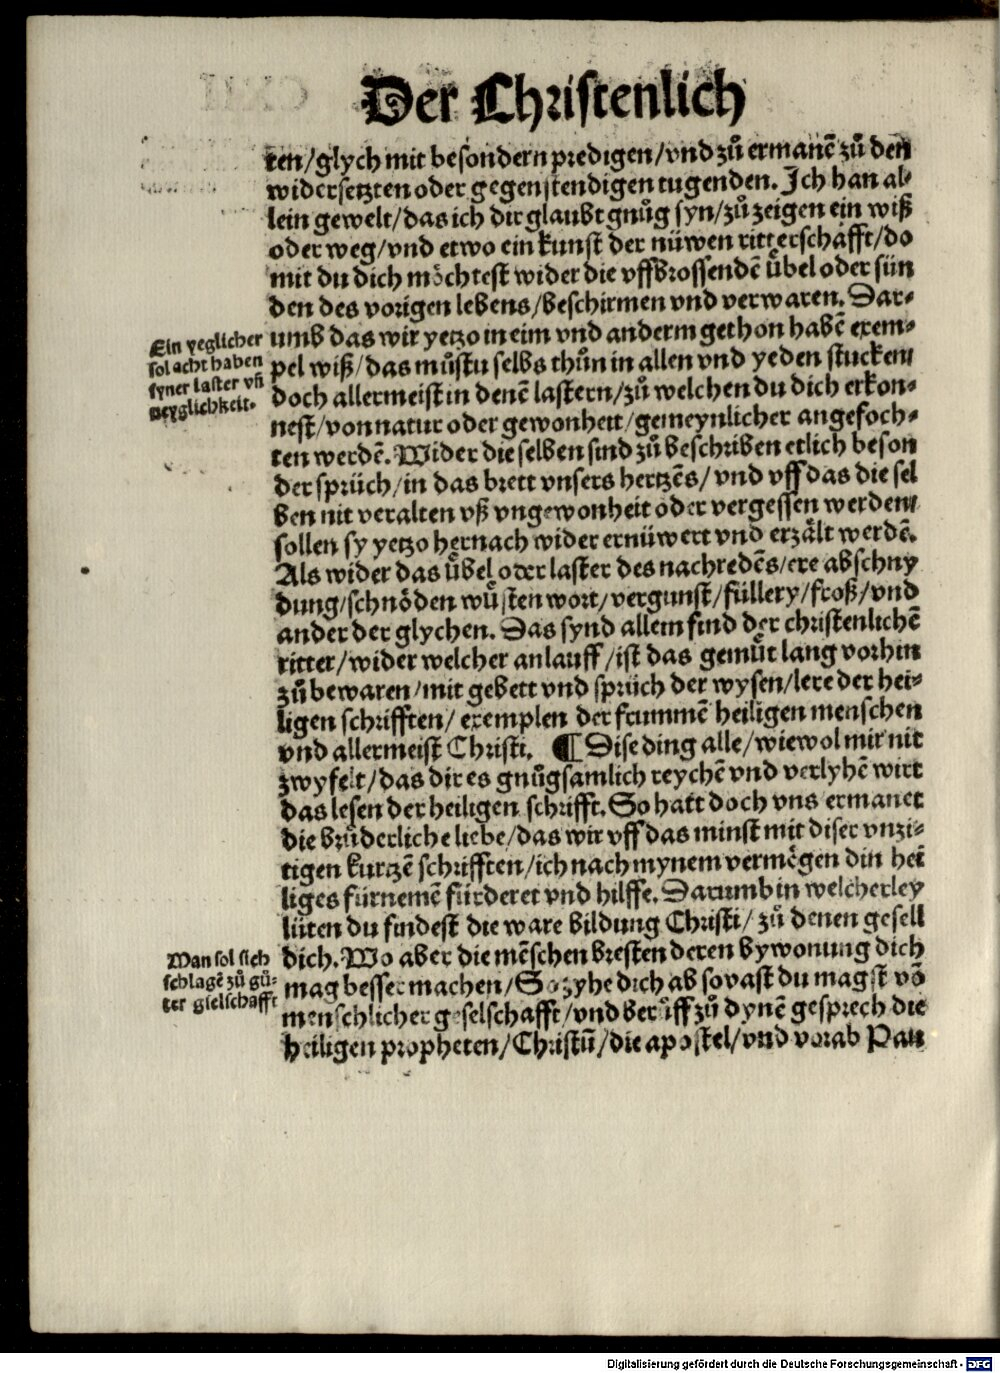 Der Christenlich
ten/glych mit besondern predigen/vnd zů ermanē zů den
widersetzten oder gegenstendigen tugenden. Ich han al⸗
lein gewelt/das ich dir glaubt gnůg syn/zů zeigen ein wiß
oder weg/vnd etwo ein kunst der nüwen ritterschafft/do
mit du dich möchtest wider die vffbrossendē übel oder sün
den des vorigen lebens/beschirmen vnd verwaren. Dar⸗
Ein yeglicher
sol acht haben
syner laster vñ
neyglichkeit.
umb das wir yetzo in eim vnd anderm gethon habē exem⸗
pel wiß/das můstu selbs thůn in allen vnd yeden stucken/
doch allermeist in denē lastern/zů welchen du dich erkon⸗
nest/von natur oder gewonheit/gemeynlicher angefoch⸗
ten werdē. Wider die selben sind zů beschriben etlich beson
der sprüch/in das brett vnsers hertzēs/vnd vff das die sel
ben nit veralten vß vngewonheit oder vergessen werden/
sollen sy yetzo hernach wider ernüwert vnd erzält werdē.
Als wider das übel oder laster des nachredēs/ere abschny
dung/schnöden wůsten wort/vergunst/füllery/froß/vnd
ander der glychen. Das synd allein find der christenlichē
ritter/wider welcher anlauff/ist das gemůt lang vorhin
zů bewaren/mit gebett vnd sprüch der wysen/lere der hei⸗
ligen schrifften/ exemplen der frummē heiligen menschen
vnd allermeist Christi. ¶ Dise ding alle/wiewol mir nit
zwyfelt/das dir es gnůgsamlich reychē vnd verlyhē wirt
das lesen der heiligen schrifft. So hatt doch vns ermanet
die brůderliche liebe/das wir vff das minst mit diser vnzi⸗
tigen kurtzē schrifften/ich nach mynem vermögen din hei
liges fürnemē fürderet vnd hilffe. Darumb in welcherley
lüten du findest die ware bildung Christi/ zů denen gesell
Man sol sich
schlagē zů gů⸗
ter gselschafft
dich. Wo aber die mēschen bresten deren bywonung dich
mag besser machen/So zyhe dich ab so vast du magst vō
menschlicher geselschafft/vnd berůff zů dynē gesprech die
heiligen propheten/Christū/die apostel/vnd vorab Pau
Digitalisierung gefördert durch die Deutsche Forschungsgemeinschaft - DFG